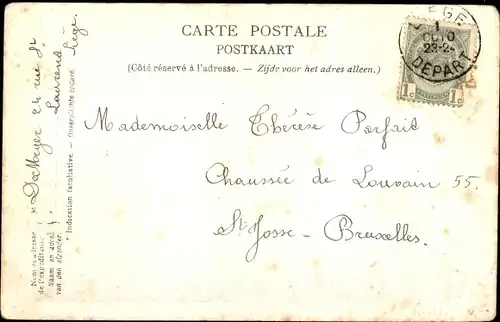 CARTE POSTALE
POSTKAART
(Côté réservé à l'adresse. — Zijde voor het adres alleen.)
Mademoiselle Thérèse Parfait
Chaussée de Louvain 55.
St Josse - Bruxelles.
LIEGE
1
OCTO
23-24
DEPART
1c 1c
24 rue St
Laurent
Liège.
Nom et adresse
de l'expéditeur.
Naam en adres
van den afzender.
* Indication facultative. — Onverplichte opgave.